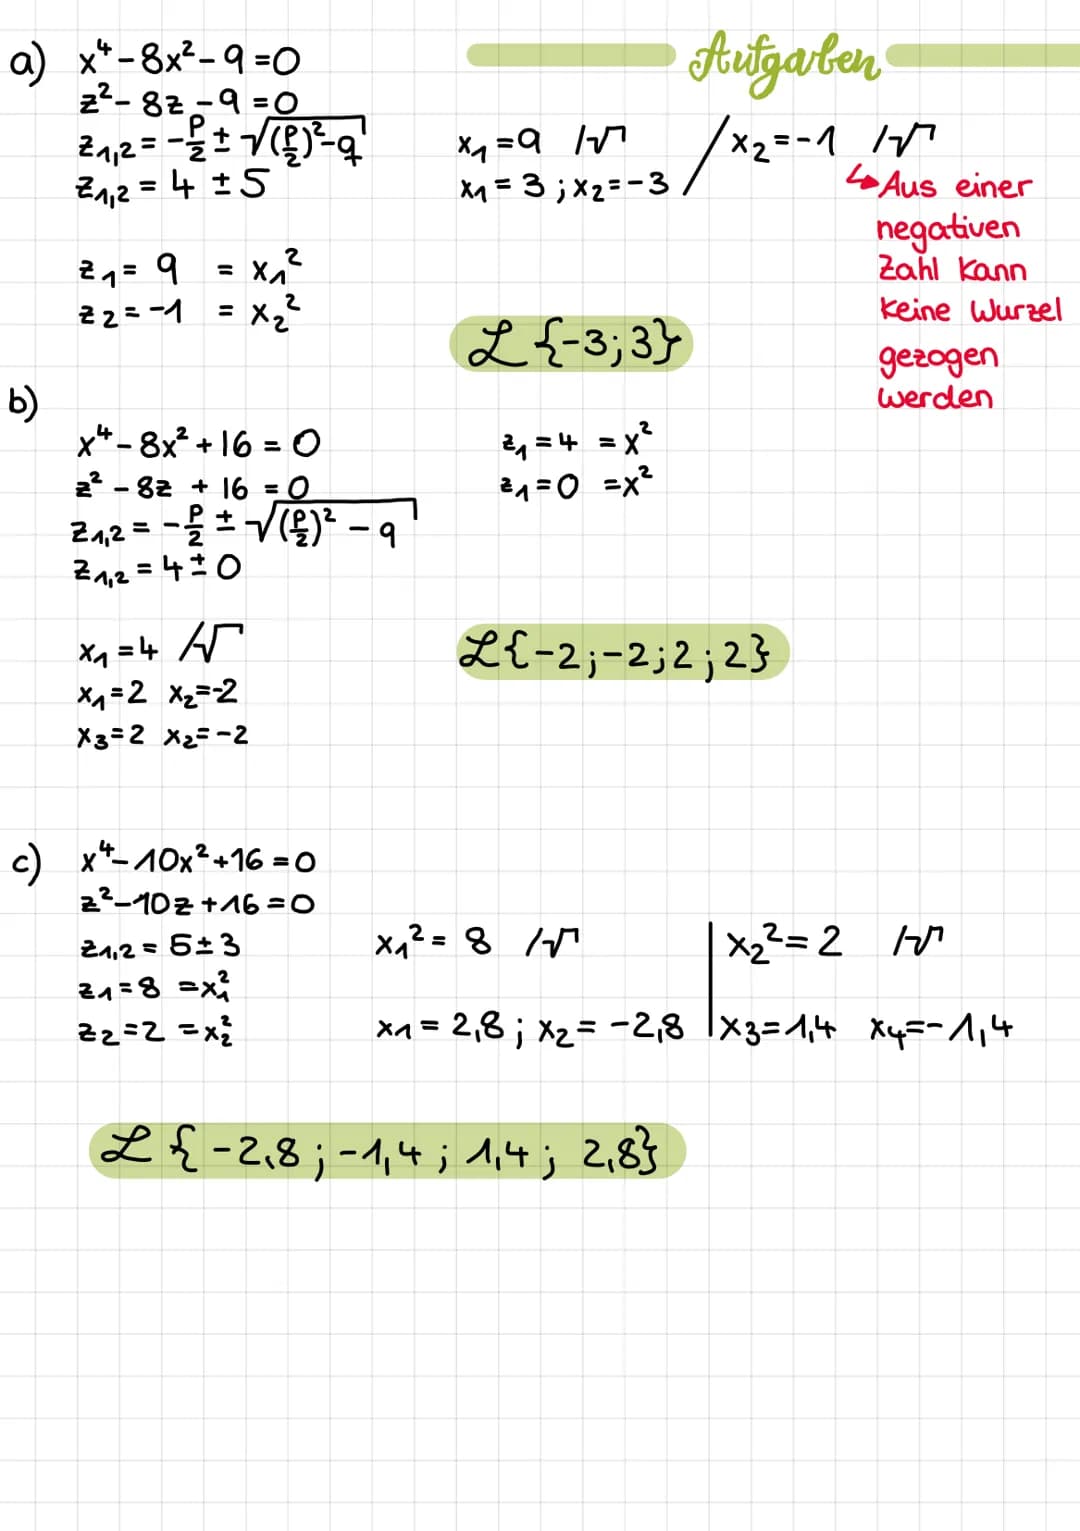 Aufgaben
a) x⁴-8x²-9=0
z²-8z-9=0
z₁,₂=-p/2±√((p/2)²-q)
z₁,₂=4±5
z₁=9 =x₁²
z₂=-1 =x₂²
x₁=9 /√
x₁=3;x₂=-3
/x₂=-1 /√
↳Aus einer
negativen
Zahl kann
keine Wurzel
gezogen
werden
L{-3;3}
b)
x⁴-8x²+16=0
z²-8z+16=0
z₁,₂=-p/2±√((p/2)²-q)
z₁,₂=4±0
z₁=4 =x²
z₁=0 =x²
x₁=4 /√
x₁=2 x₂=-2
x₃=2 x₂=-2
L{-2;-2;2;2}
c) x⁴-10x²+16=0
z²-10z+16=0
z₁,₂=5±3
z₁=8 =x₁²
z₂=2 =x₂²
x₁²=8 /√
x₁=2,8; x₂=-2,8
x₂²=2 /√
x₃=1,4 x₄=-1,4
L{-2,8;-1,4;1,4;2,8}